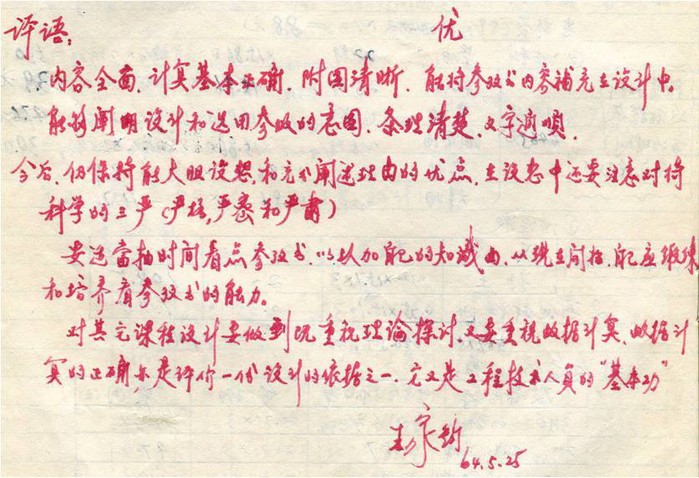 评语: 优
内容全面,计算基本正确,附图清晰,能将参考书内容补充在设计中,
能够阐明设计和选用参数的意图,条理清楚,文字通顺,
今后,仍保持能大胆设想和充分阐述理由的优点,在设计中还要注意对待
科学的三严(严格,严密和严肃)
要适当抽时间看点参考书,以 知识面,从现在开始,就应锻炼
和培养看参考书的能力。
对其它课程设计要做到既重视理论探讨,又要重视数据计算,数据计
算的正确亦是评价一份设计的依据之一,它又是工程技术人员的“基本功”
64.5.25